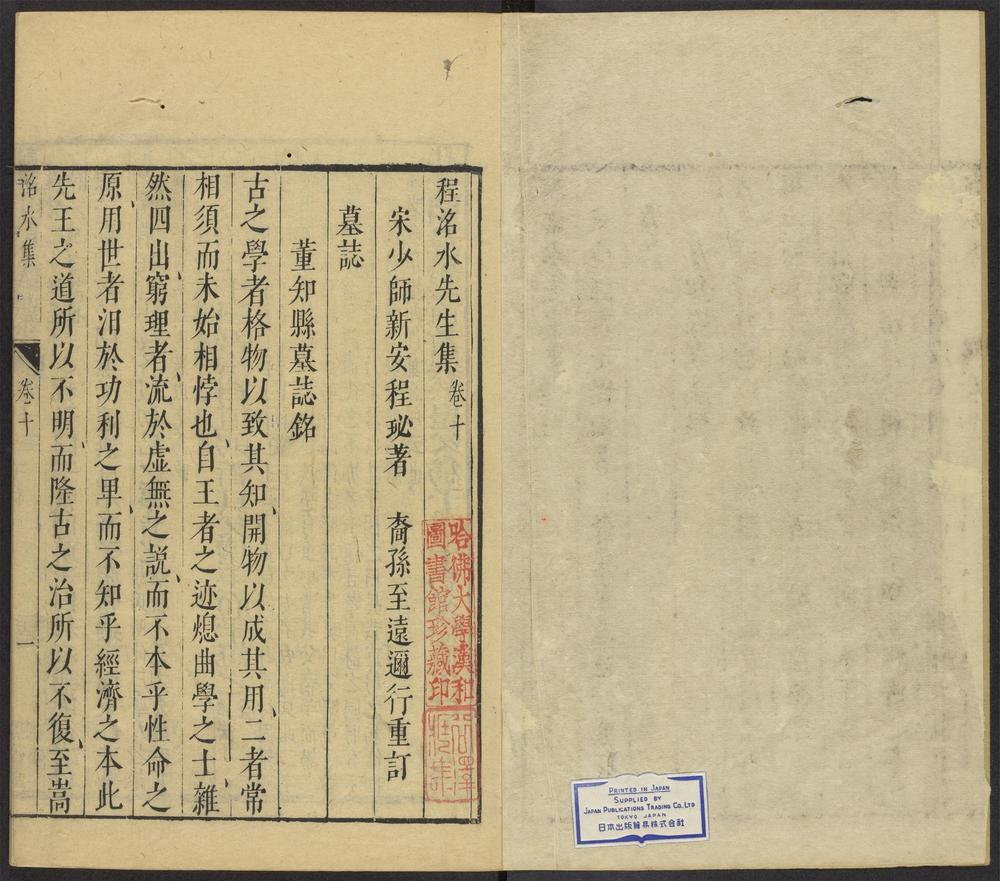 程洺水先生集 卷十
宋少師新安程珌著 裔孫至遠邇行重訂
墓誌
董知縣墓誌銘
古之學者格物以致其知開物以成其用二者常
相須而未始相悖也自王者之迹熄曲學之士雜
然四出窮理者流於虛無之説而不本乎性命之
原用世者汨於功利之卑而不知乎經濟之本此
先王之道所以不明而隆古之治所以不復至嵩
洺水集 卷十 一
哈佛大學漢和
圖書館珍藏印
PRINTED IN JAPAN
SUPPLIED BY
JAPAN PUBLICATIONS TRADING CO., LTD
TOKYO JAPAN
日本出版貿易株式会社